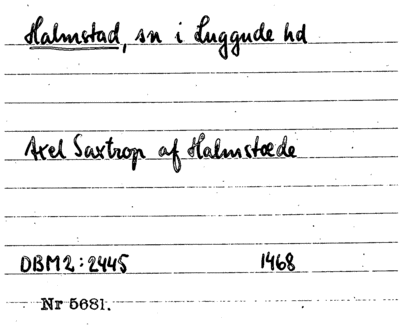 Halmstad, sn i Luggude hd
Axel Saxtrop af Halmstæde
DBM2:2445 1468
Nr 5681.